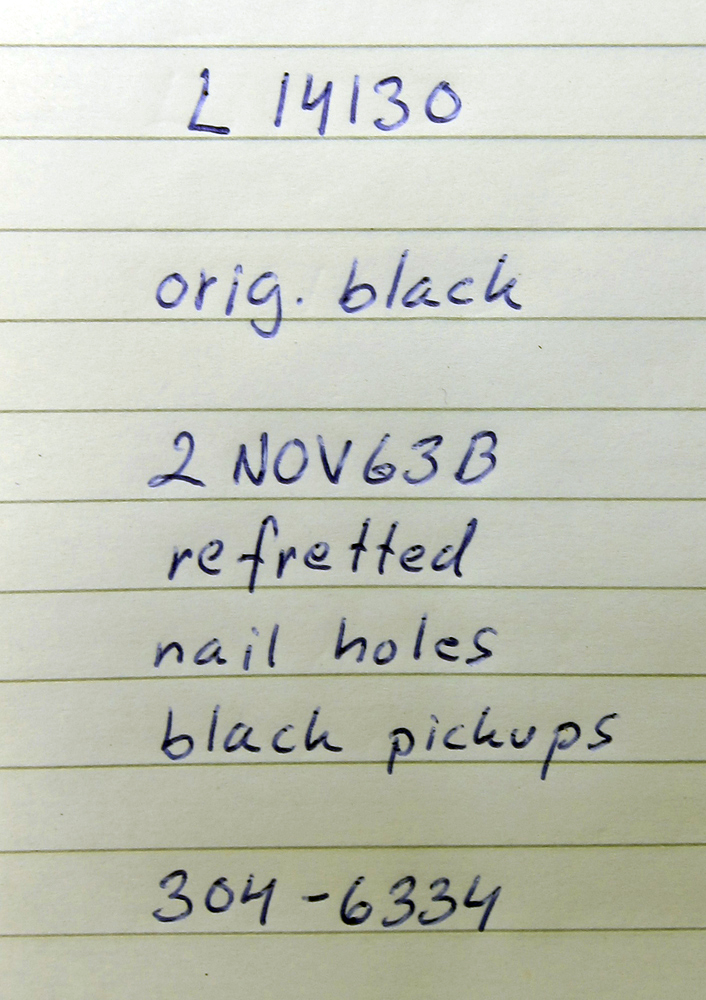 L 14130
orig. black
2 NOV 63 B
refretted
nail holes
black pickups
304-6334